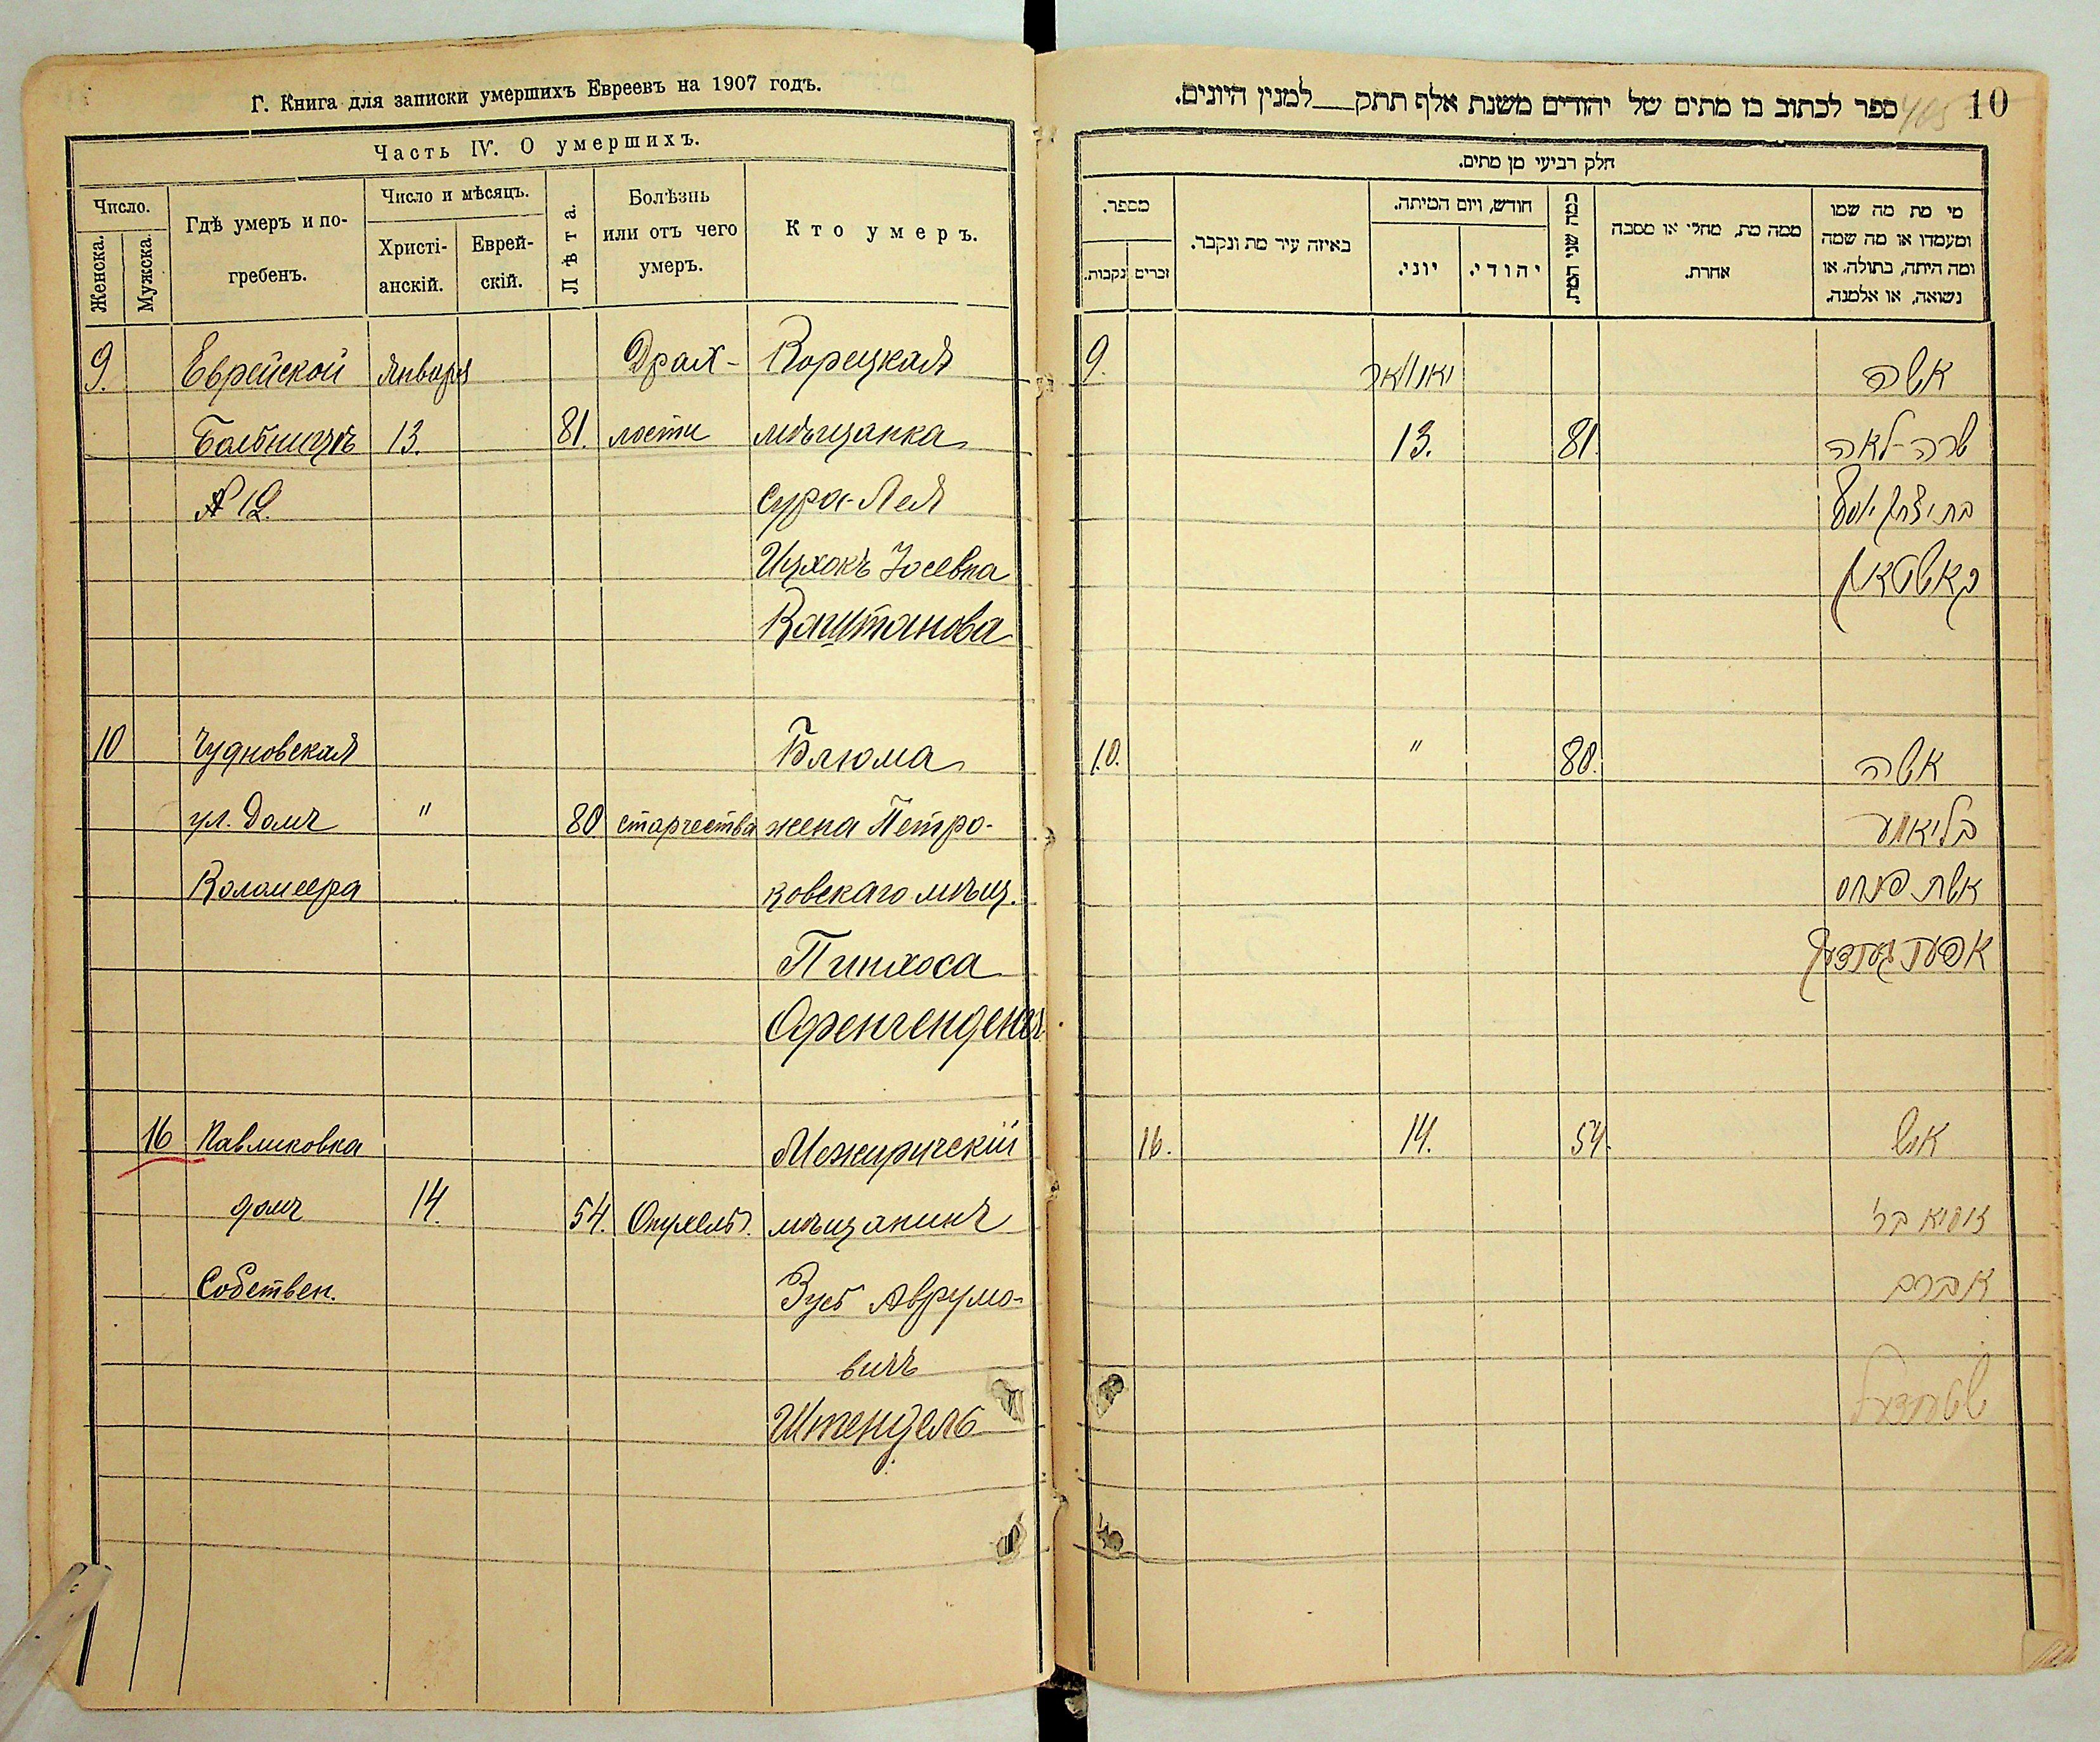 Г. Книга для записки умершихъ Евреевъ на 1907 годъ.
Часть IV. О умершихъ.
Число.
Женска.
Мужска.
Гдѣ умеръ и по-
гребенъ.
Число и мѣсяцъ.
Христі-
анскій.
Еврей-
скій.
Лѣта.
Болѣзнь
или отъ чего
умеръ.
Кто умеръ.
9. Еврейской Января Драх- Корецкая
Больницѣ 13. 81. лости мѣщанка
№ 12. Сура-Лея
Ицхокъ Іосевна
Каштанова
10 Чудновская Блюма
ул. Домъ " 80 старчества жена Петро-
Коломеера ковскаго мѣщ.
Пинхоса
Офенгенденъ
16 Павликовка Межиричскій
домъ 14. 54. Опухель. мѣщанинъ
Собствен. Зусь Аврумо-
вичъ
Штендель
ספר לכתוב בו מתים של יהודים משנת אלף תתק— למנין היונים.
405 10
חלק רביעי מן מתים.
מספר.
נקבות.
זכרים
באיזה עיר מת ונקבר.
חודש, ויום המיתה.
יוני.
יהודי.
כמה שני המת.
ממה מת, מחלי או מסבה
אחרת.
מי מת מה שמו
ומעמדו או מה שמה
ומה היתה, בתולה, או
נשואה, או אלמנה.
9. יאנואר אשה
13. 81. שרה-לאה
בת יצחק יוסף
קאשטאן
10. " 80. אשה
בליומע
אשת פנחס
אפענגענדען
16. 14. 54. איש
זוסיא בר'
אברם
שטענדעל